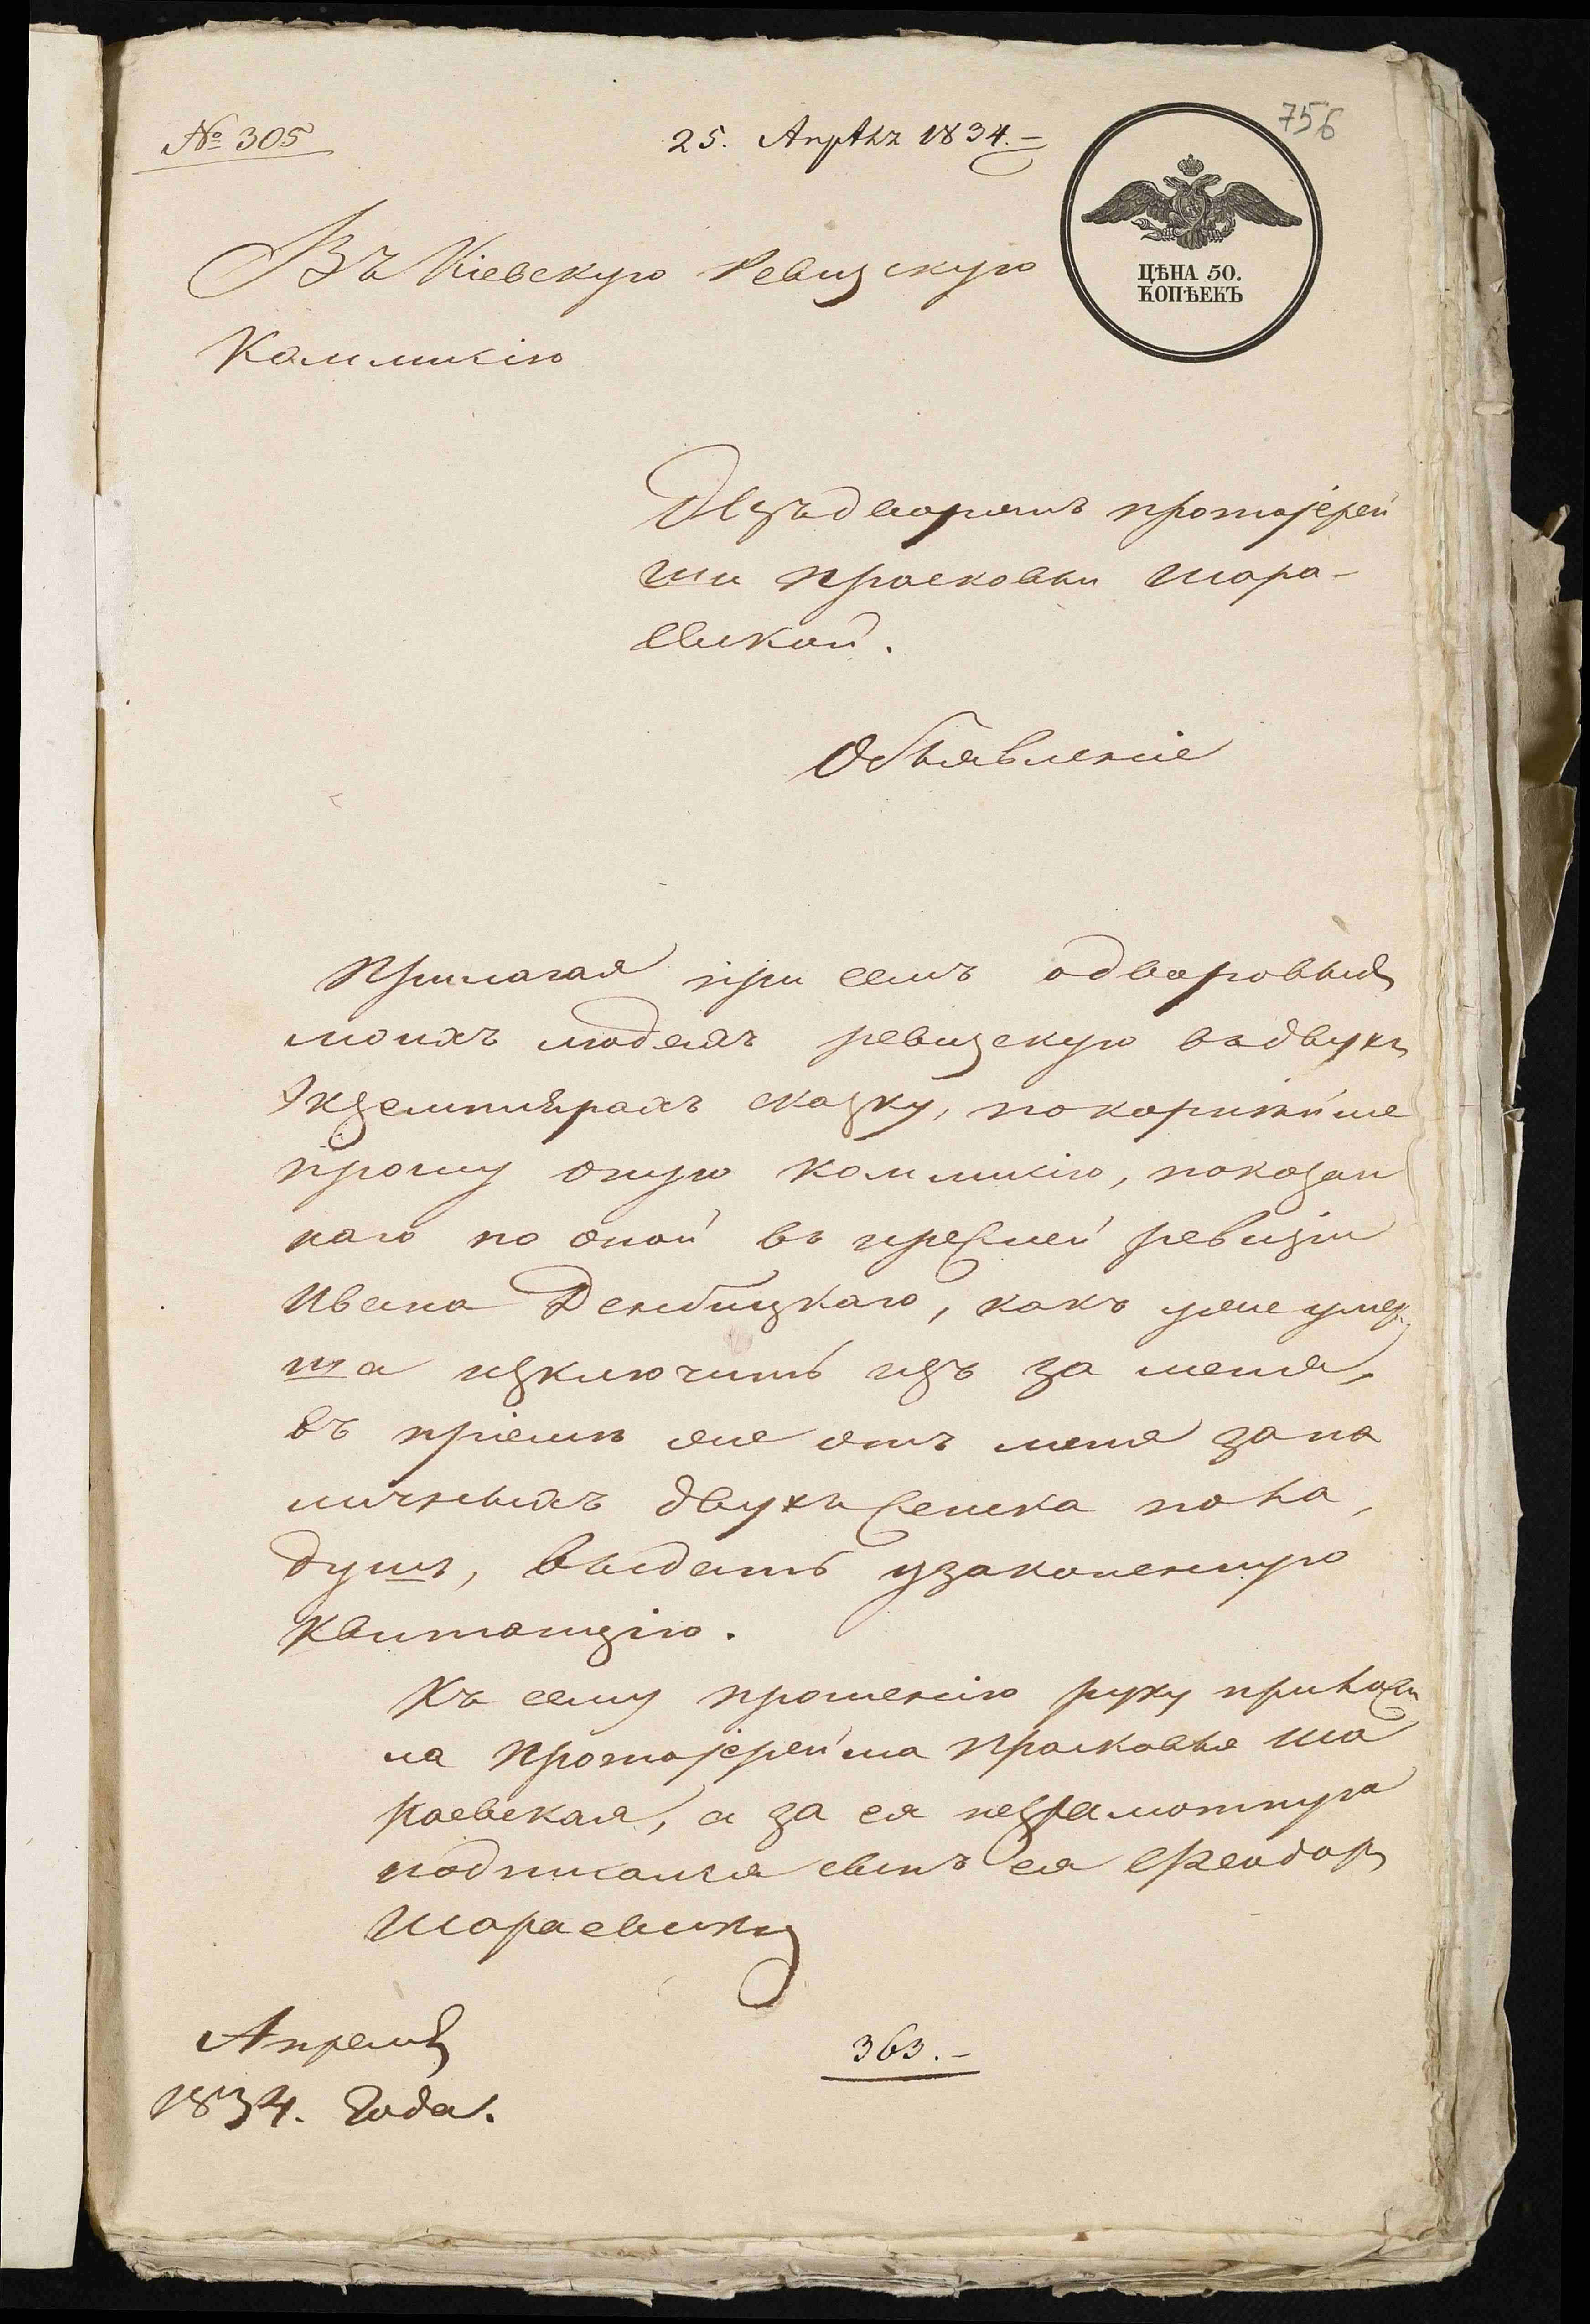 № 305
25. Апрѣлъ 1834.-
756
ЦѢНА 50.
КОПѢЕКЪ
Въ Кіевскую Ревизскую
Коммисію
Изъ дворянъ протоіерей
ши Просковіи Шара-
евской.
Объявленіе
Прилагая при семъ одворовыхъ
моихъ людехъ ревизскую въ двухъ
Экземплярахъ сказку, покорнѣйше
прошу оную коммисію, показан
наго по оной въ прежней ревизіи
Ивана Дембицкаго, какъ уже умер
ша изключить изъ за меня,
въ пріемѣ же отъ меня за на
личныхъ двухъ женска пола,
душъ, выдать узаконенную
Квитанцію.
Къ сему прошенію руку приложи
ла Протоіерейша Прасковья Ша
раевская, а за ея неграмотную
подписался сынъ ея Феодоръ
Шараевскій
Апреля
1834. Года.
363.-